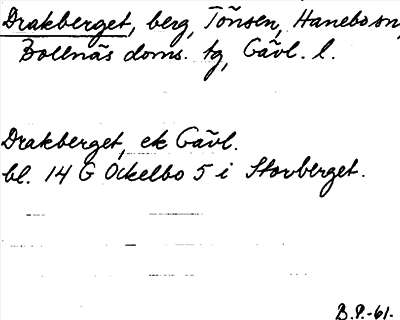 Drakberget, berg, Tönsen, Hanebo sn,
Bollnäs doms. tg, Gävl. l.
Drakberget, ek Gävl.
bl. 14 G Ockelbo 5 i Storberget.
B.P.-61.